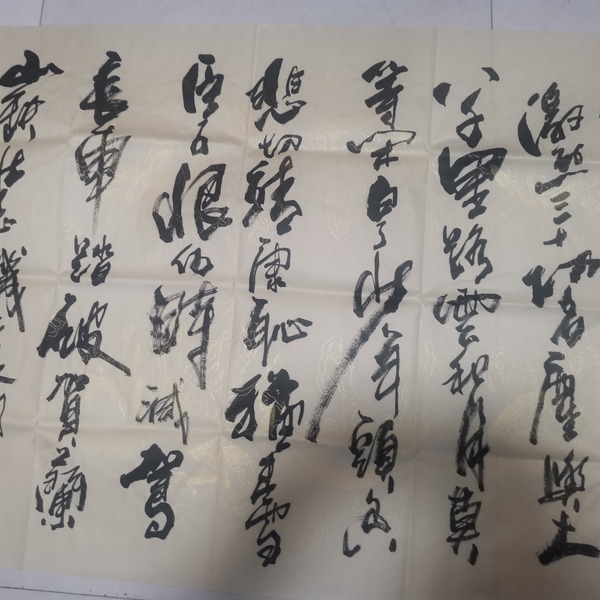 激烈三十功名塵與土
八千里路雲和月莫
等閒白了少年頭空
悲切靖康恥猶未雪
臣子恨何時滅駕
長車踏破賀蘭
山缺壯志饑